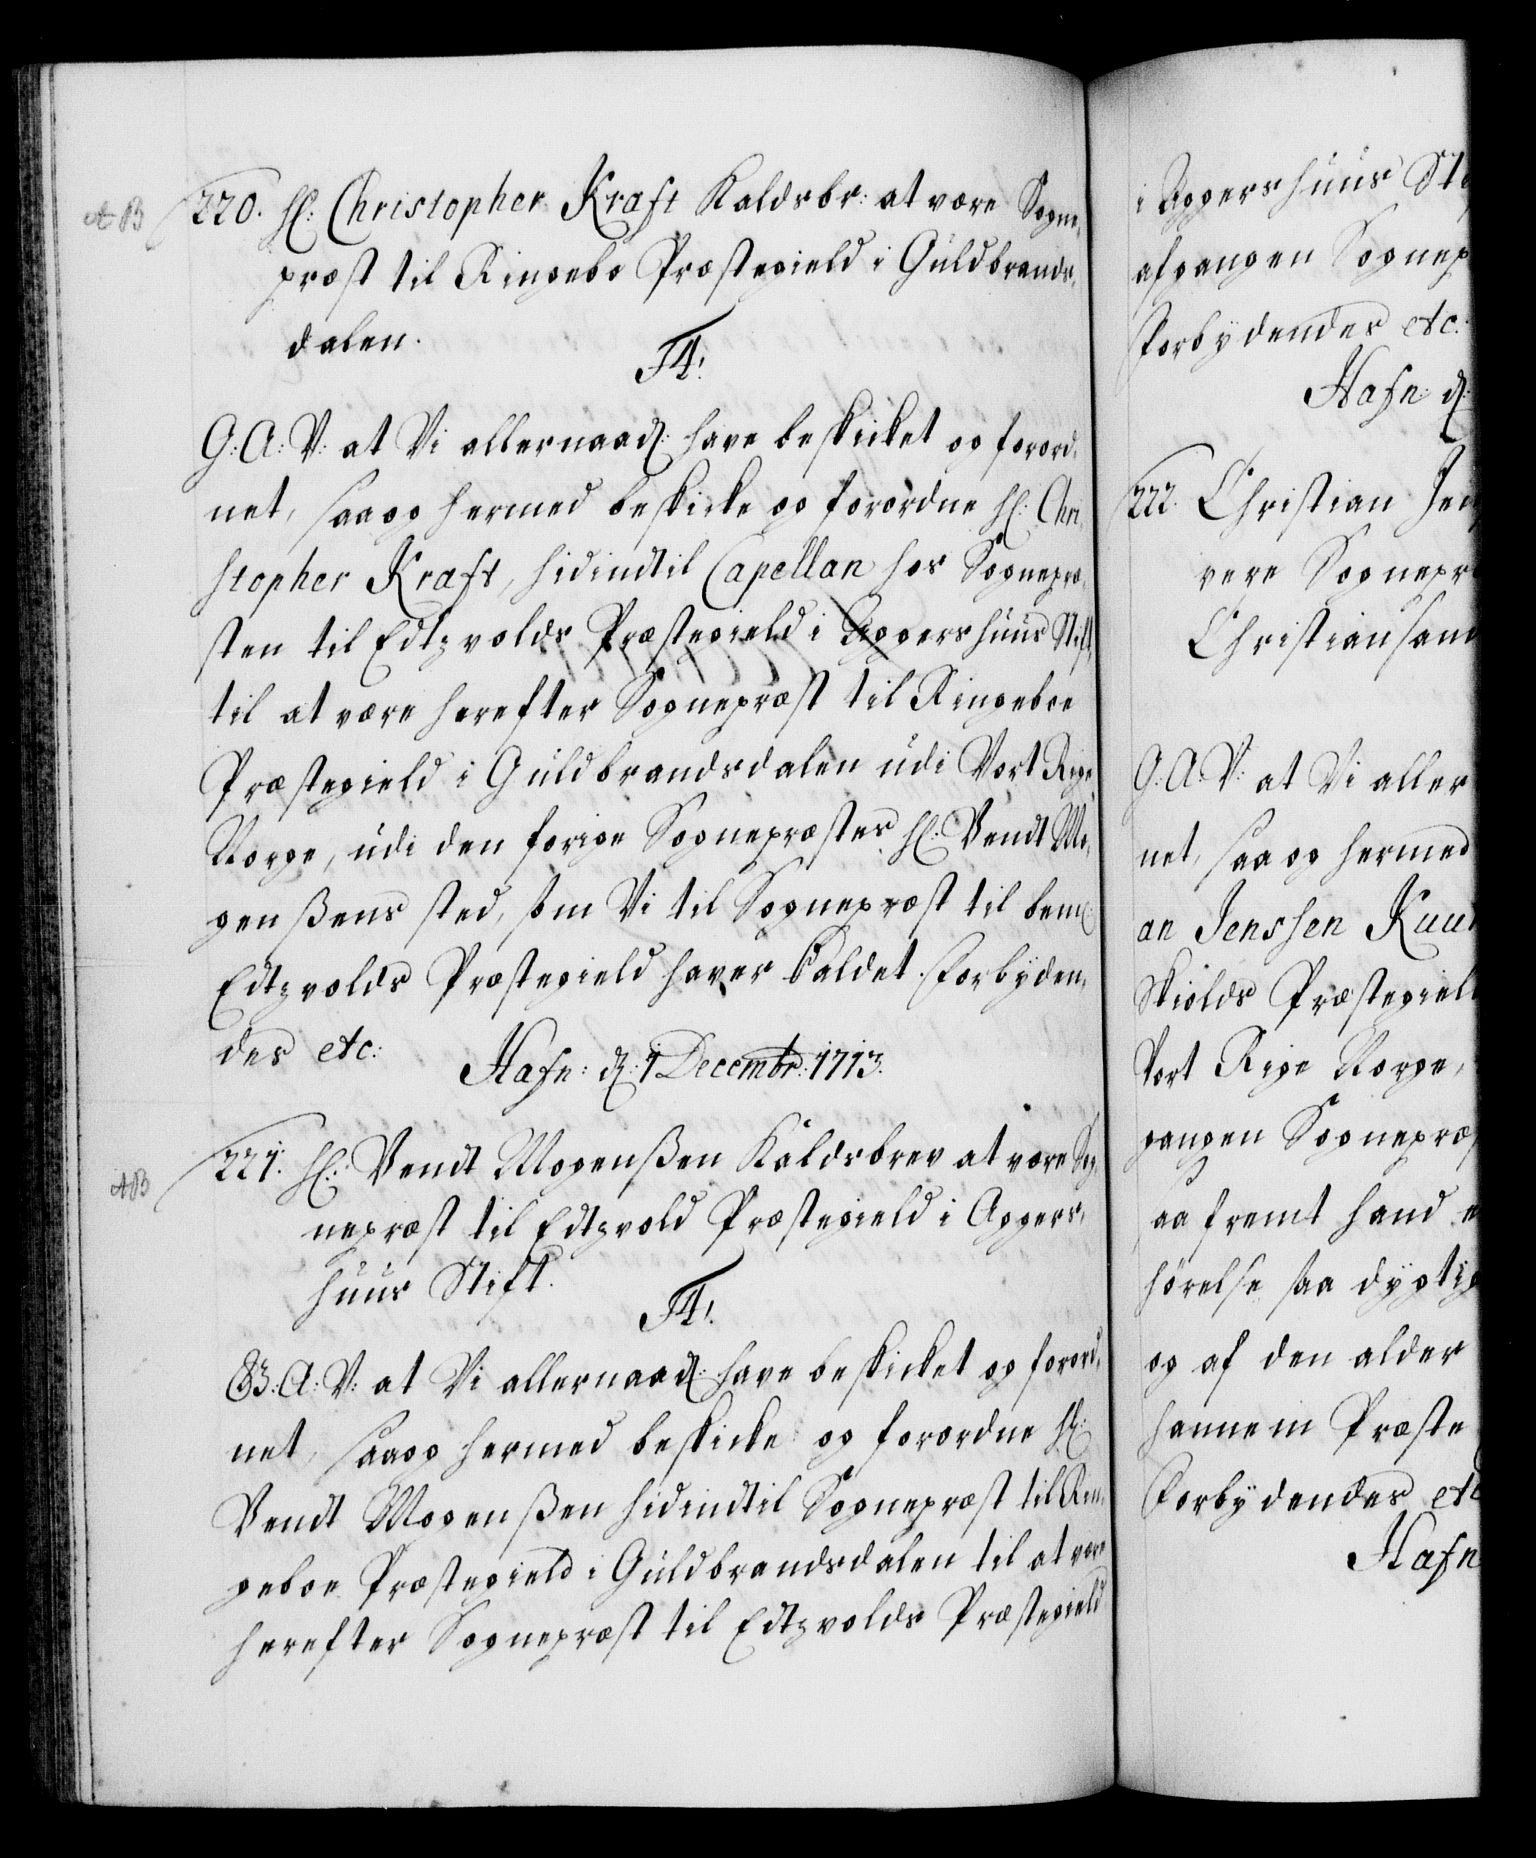 AB 220. Hr: Christopher Kraft Kaldsbr: at være Sogne,
præst til Ringebo Præstegield i Guldbrands,
dalen.
F4!
G: A: V: at Vi allernaad: have beskicket og forord,
net, saa og hermed beskicke og forordne Hr: Chri,
stopher Kraft, hidindtil Capellan hos Sognepræ,
sten til Edtzvolds Præstegield i Aggershuus Stift,
til at være herefter Sognepræst til Ringeboe
Præstegield i Guldbrandsdalen udi Vort Rige
Norge, udi den forige Sognepræstes Hr: Vendt Mo,
genßens sted, som Vi til Sognepræst til bemte
Edtzvolds Præstegield haver kaldet. Forbyden,
des etc:
Hafn: d: 1 Decembr: 1713.
AB 221. Hr: Vendt Mogenßen Kaldsbrev at være Sog,
nepræst til Edtzvold Præstegield i Aggers,
huus Stift.
F4!
G: A: V: at Vi allernaad: have beskicket og forord,
net, saa og hermed beskicke og forordne Hr:
Vendt Mogenßen hidindtil Sognepræst til Rin,
geboe Præstegield i Guldbrandsdalen til at være
herefter Sognepræst til Edtzvolds Præstegield
i Aggershuus St
afgangen Sognep
Forbydendes etc:
Hafn: d:
222. Christian Jen
være Sognepr
Christiansan
G: A: V: at Vi aller
net, saa og hermed
an Jenssen Kuur
Skiolds Præstegiel
Vort Rige Norge,
gangen Sognepræ
saa fremt hand e
hørelse saa dygtig
og af den alder
hannem Præste
Forbydendes etc
Hafn